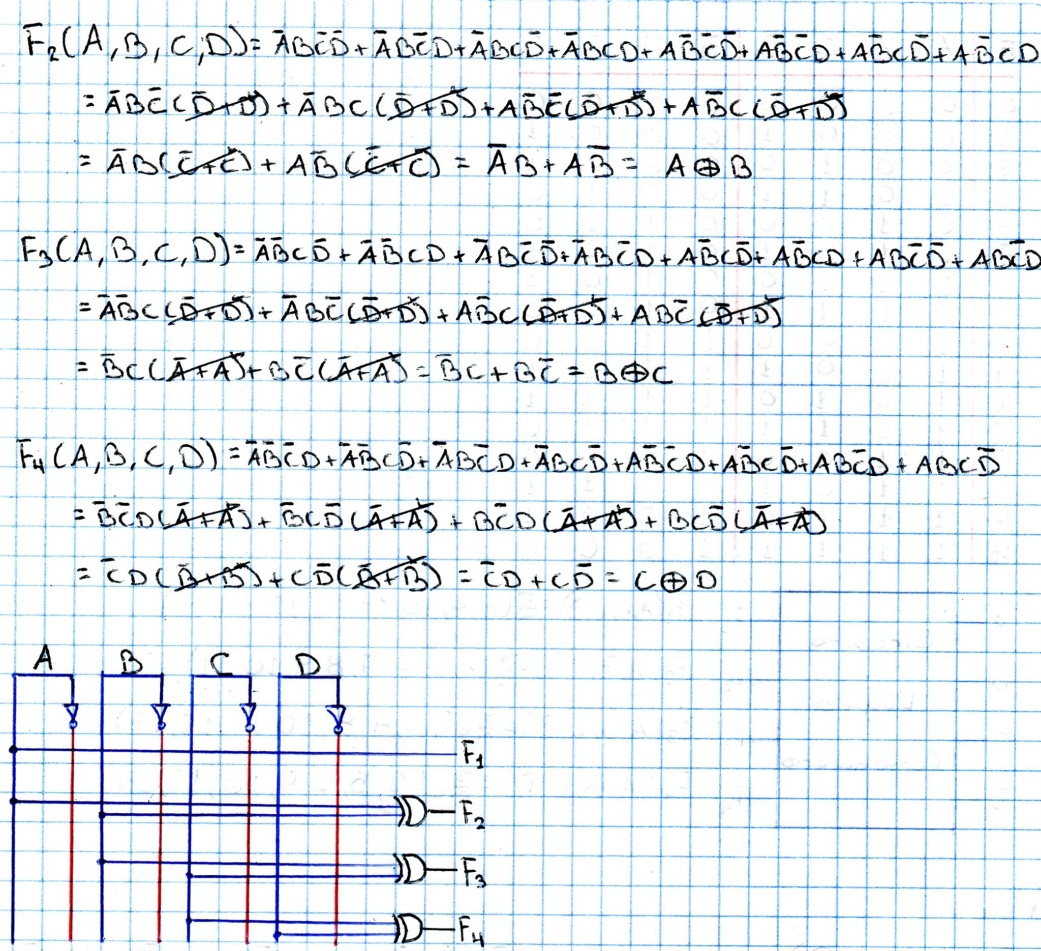 F₂(A,B,C,D)= ĀBC̄D̄+ĀBC̄D+ĀBCD̄+ĀBCD+AB̄C̄D̄+AB̄C̄D+AB̄CD̄+AB̄CD
= ĀBC̄(D̄+D)+ĀBC(D̄+D)+AB̄C̄(D̄+D)+AB̄C(D̄+D)
= ĀB(C̄+C)+AB̄(C̄+C) = ĀB+AB̄ = A⊕B
F₃(A,B,C,D)= ĀB̄CD̄+ĀB̄CD+ĀBC̄D̄+ĀBC̄D+AB̄CD̄+AB̄CD+ABC̄D̄+ABC̄D
= ĀB̄C(D̄+D)+ĀBC̄(D̄+D)+AB̄C(D̄+D)+ABC̄(D̄+D)
= B̄C(Ā+A)+BC̄(Ā+A)= B̄C+BC̄ = B⊕C
F₄(A,B,C,D)= ĀB̄C̄D+ĀB̄CD̄+ĀBC̄D+ĀBCD̄+AB̄C̄D+AB̄CD̄+ABC̄D+ABCD̄
= B̄C̄D(Ā+A)+B̄CD̄(Ā+A)+BC̄D(Ā+A)+BCD̄(Ā+A)
= C̄D(B̄+B)+CD̄(B̄+B) = C̄D+CD̄ = C⊕D
A B C D
F₁
F₂
F₃
F₄